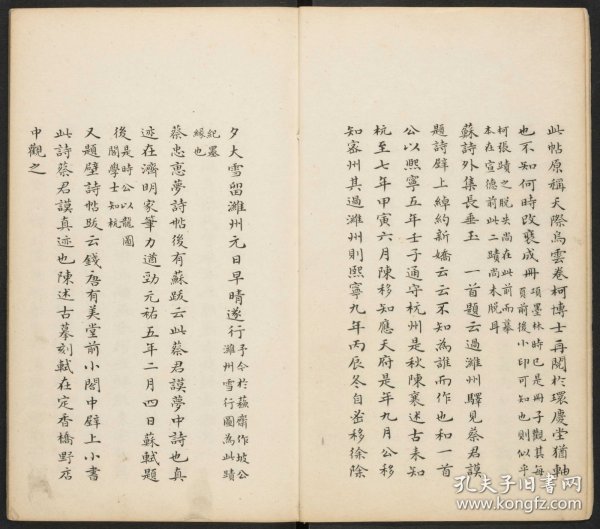 此帖原稱天際烏雲卷柯博士再閱於環慶堂猶軸
也不知何時改裝成冊項墨林時已是冊子觀其每頁前後小印可知也則似乎
柯張蹟之脫失尚在此前而幕本在宣德前此二蹟尚未脫耳
蘇詩外集長垂玉一首題云過濰州驛見蔡君謨
題詩壁上綽約新嬌云云不知為誰而作也和一首
公以熙寧五年壬子通守杭州是秋陳襄述古来知
杭至七年甲寅六月陳移知應天府是年九月公移
知密州其過濰州則熙寧九年丙辰冬自密移徐除
夕大雪留濰州元日早晴遂行予今於蘇齋作坡公濰州雪行圖為此蹟
紀墨緣也
蔡忠惠夢詩帖後有蘇跋云此蔡君謨夢中詩也真
迹在濟明家筆力遒勁元祐五年二月四日蘇軾題
後是時公以龍圖閣學士知杭
又題壁詩帖跋云錢唐有美堂前小閣中壁上小書
此詩蔡君謨真迹也陳述古摹刻軾在定香橋野店
中觀之
孔夫子旧书网
www.kongfz.com